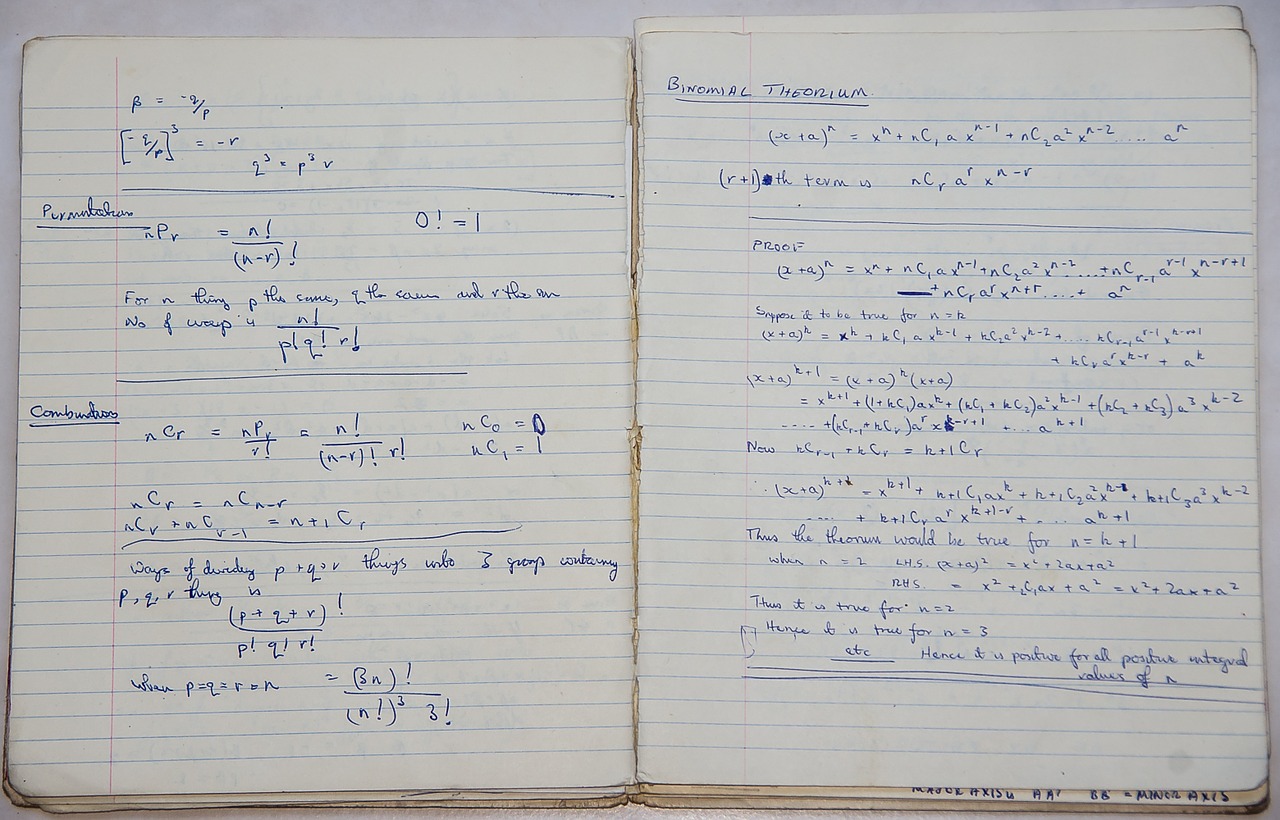 β = -q/p
[-q/p]³ = -r
q³ = p³ r
Permutations
nPr = n!/(n-r)! 0! = 1
For n thing p the same, q the same and r the
No of ways is n!/p! q! r!
Combinations
nCr = nPr/r! = n!/(n-r)! r! nC₀ = 0
nC₁ = 1
nCr = nCn-r
nCr + nCr-1 = n+1Cr
Ways of dividing p+q+r things into 3 group containing
p, q, r thing is
(p+q+r)!/p! q! r!
when p=q=r=n = (3n)!/(n!)³ 3!
BINOMIAL THEORIUM
(x+a)ⁿ = xⁿ + nC₁ a xⁿ⁻¹ + nC₂a² xⁿ⁻² ..... aⁿ
(r+1)th term is nCr aʳ xⁿ⁻ʳ
PROOF
(x+a)ⁿ = xⁿ + nC₁ a xⁿ⁻¹ + nC₂ a² xⁿ⁻² ..... + nCr-1 aʳ⁻¹ xⁿ⁻ʳ⁺¹
+ nCr aʳ xⁿ⁺ʳ ....+ aⁿ
Suppose it to be true for n=k
(x+a)ᵏ = xᵏ + kC₁ a xᵏ⁻¹ + kC₂a² xᵏ⁻² + ..... kCr-1 aʳ⁻¹ xᵏ⁻ʳ⁺¹
+ kCr aʳ xᵏ⁻ʳ + aᵏ
(x+a)ᵏ⁺¹ = (x+a)ᵏ (x+a)
= xᵏ⁺¹ + (1+kC₁)axᵏ + (kC₁ + kC₂)a² xᵏ⁻¹ + (kC₂ + kC₃) a³ xᵏ⁻²
.... + (kCr-1 + kCr)aʳ xᵏ⁻ʳ⁺¹ + ... aᵏ⁺¹
Now kCr-1 + kCr = k+1Cr
∴ (x+a)ᵏ⁺¹ = xᵏ⁺¹ + k+1C₁axᵏ + k+1C₂a²xᵏ⁻¹ + k+1C₃a³ xᵏ⁻²
.... + k+1Cr aʳ xᵏ⁺¹⁻ʳ + .... aᵏ⁺¹
Thus the theorum would be true for n = k+1
when n = 2 L.H.S. (x+a)² = x² + 2ax + a²
RHS. = x² + ₂C₁ax + a² = x² + 2ax + a²
Thus it is true for n=2
Hence it is true for n = 3
etc Hence it is positive for all positive integral
values of n
MAJOR AXIS AA' BB = MINOR AXIS